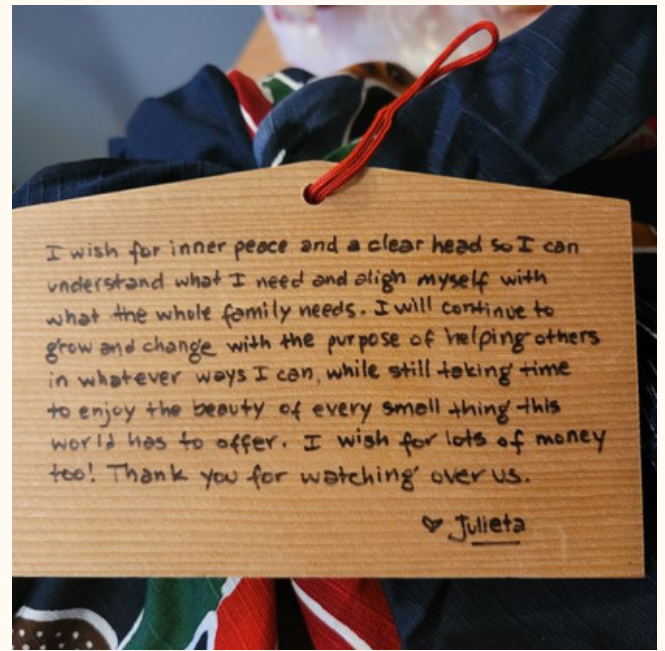 I wish for inner peace and a clear head so I can
understand what I need and align myself with
what the whole family needs. I will continue to
grow and change with the purpose of helping others
in whatever ways I can, while still taking time
to enjoy the beauty of every small thing this
world has to offer. I wish for lots of money
too! Thank you for watching over us.
♡ Julieta